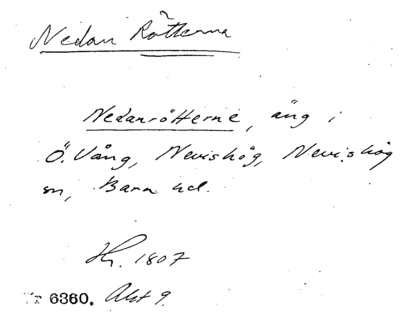 Nedan Rötterna
Nedanrötterne, äng i
Ö. Vång, Nevishög, Nevishög
sn, Bara hd.
Hr. 1807
Nr 6360. Akt 9.